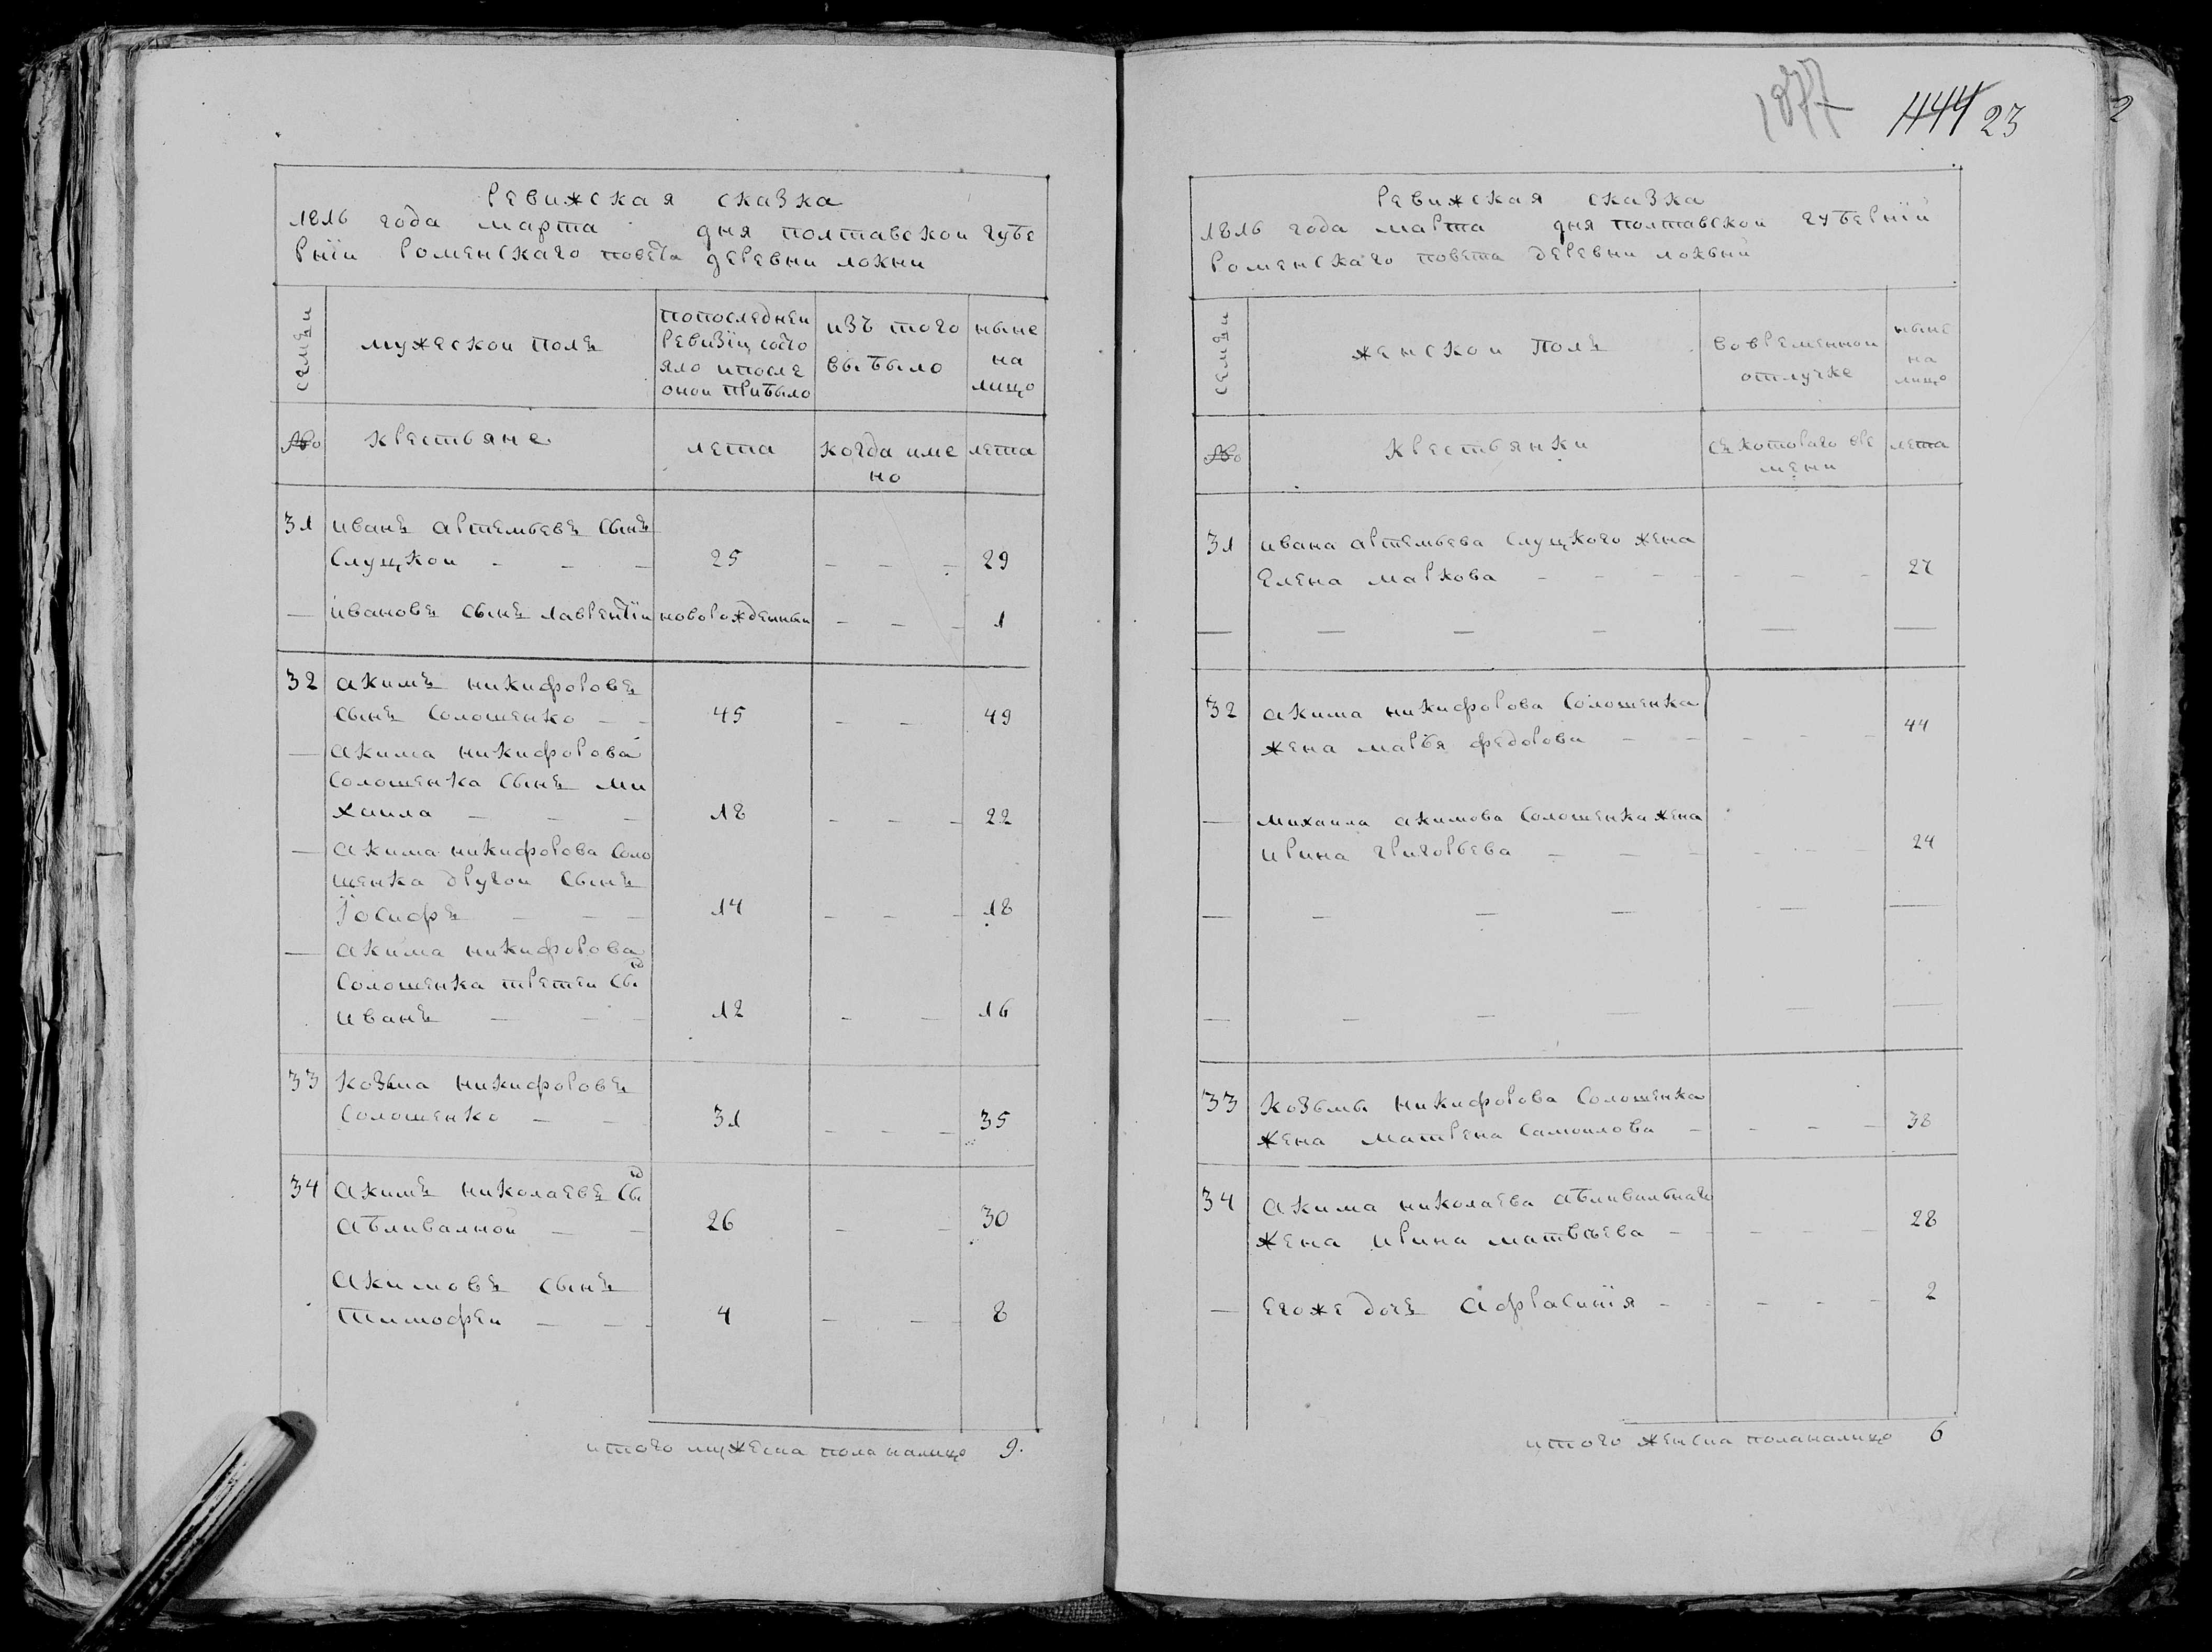 Ревижская сказка
1816 года марта дня полтавскои губе
рнїи Роменскаго повета деревни локни
семъи
мужескои полъ
попоследнеи ревизїи состо яло ипосле онои прибыло
изъ того выбыло
ныне на лицо
№
крестьяне
лета
когда име но
лета
31 иванъ артемьевъ сынъ
слуцкои - - - 25 - - - 29
— ивановъ сынъ лаврентїи новорожденныи - - - 1
32 акимъ никифоровъ
сынъ солошенко - - 45 - - 49
— акима никифорова
солошенка сынъ ми
хаила - - - 18 - - - 22
— акима никифорова соло
шенка другои сынъ
їосифъ - - - 14 - - - 18
— акима никифорова
солошенка третеи сынъ
иванъ - - - 12 - - 16
33 козьма никифоровъ
солошенко - - 31 - - - 35
34 акимъ николаевъ сынъ
абливалной - - 26 - - 30
акимовъ сынъ
тимофеи - - - 4 - - - 8
итого мужеска пола налицо 9.
1877 444 23
2
Ревижская сказка
1816 года марта дня полтавскои губернїй
роменскаго повета деревни лохьни
семъи
женскои полъ
вовременнои отлучке
ныне на лицо
№
крестьянки
съ котораго вре мени
лета
31 ивана артемьева слуцкого жена
елена маркова - - - - - - 27
— — — — — —
32 акима никифорова солошенка
жена марья федорова - - - - - 44
— михаила акимова солошенка жена
ирина григорьева - - - - - - 24
— — — — — —
— — — — — —
33 козьмы никифорова солошенка
жена матрена самоилова - - - - 38
34 акима николаева абливальнаго
жена ирина матвѣева - - - 28
— егоже дочъ афрасинїя - - - - - 2
итого женска поланалицо 6